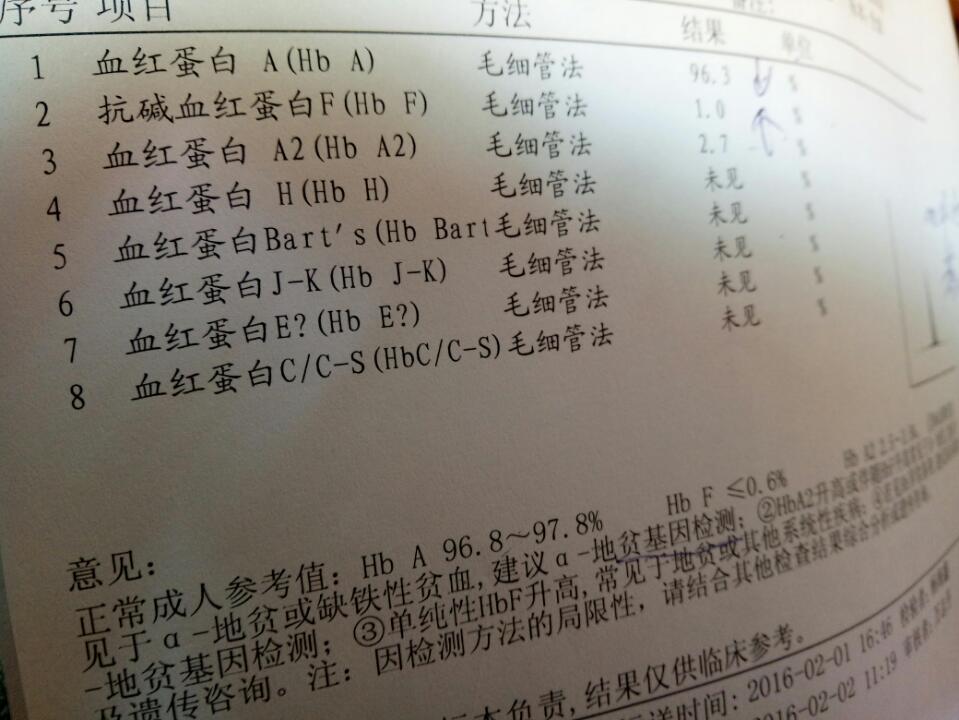 序号 项目 方法 结果 单位
1 血红蛋白 A(Hb A) 毛细管法 96.3 %
2 抗碱血红蛋白F(Hb F) 毛细管法 1.0 %
3 血红蛋白 A2(Hb A2) 毛细管法 2.7 %
4 血红蛋白 H(Hb H) 毛细管法 未见 %
5 血红蛋白Bart's(Hb Bart 毛细管法 未见 %
6 血红蛋白J-K(Hb J-K) 毛细管法 未见 %
7 血红蛋白E?(Hb E?) 毛细管法 未见 %
8 血红蛋白C/C-S(HbC/C-S) 毛细管法 未见
意见:
正常成人参考值: Hb A 96.8~97.8% Hb F ≤0.6% Hb A2
见于α-地贫或缺铁性贫血,建议α-地贫基因检测; ②HbA2升高或
-地贫基因检测; ③单纯性HbF升高,常见于地贫或其他系统性疾病;
及遗传咨询。注: 因检测方法的局限性, 请结合其他检查结果综合分析
本负责,结果仅供临床参考。
送时间: 2016-02-01 16:46 检验者:
2016-02-02 11:19 审核者: